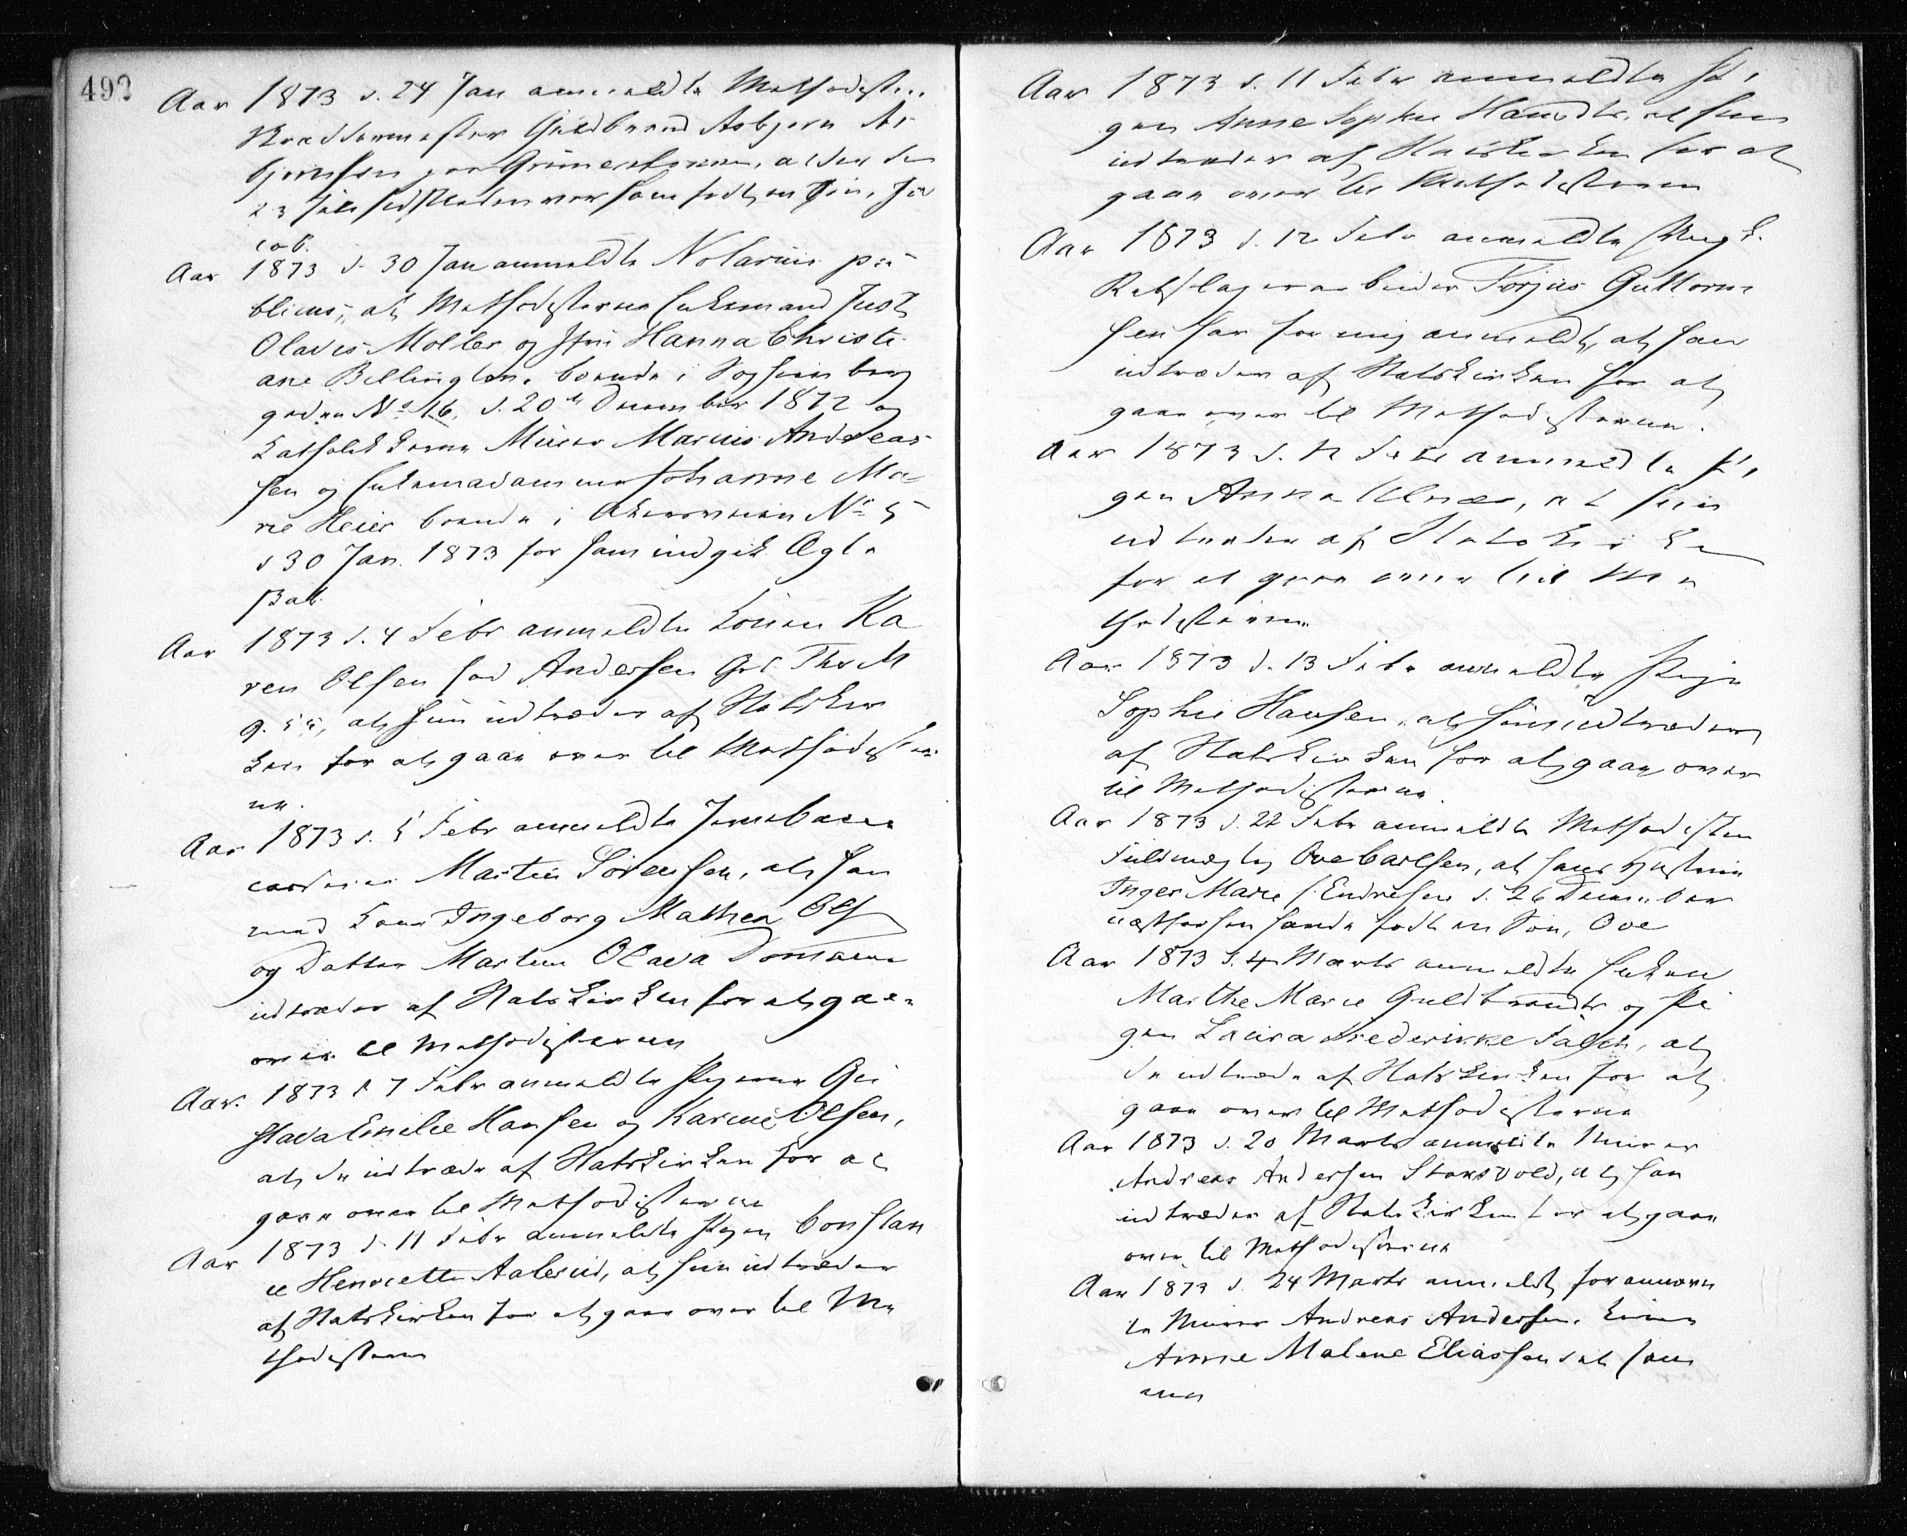 492
Aar 1873 d. 24 Jan anmeldte Methodisten
Skreddermester Guldbrand Asbjørn As
bjørnsen paa Grünerløkken, at den
23 Juli havde født en Søn, Ja
cob.
Aar 1873 d. 30 Jan anmeldte Notarius pu
blicus, at Methodisterne Enkemand Just
Olaves Møller og Jfr Hanna Christi
ane Billington, boende i
gaden No 16, d. 20de December 1872 og
Katholikkerne Murer Marius Andreas
sen og Enkemadamme Johanne Ma
rie Heier boende i Akersveien No 5
d 30 Jan. 1873 for ham indgik Ægte
skab.
Aar 1873 d. 4 Febr anmeldte Konen Ka
ren Olsen fød Andersen Gl. Thr M
g. 55, at hun udtræder af Statskir
ken for at gaae over til Methodister
ne.
Aar 1873 d. 5 Febr anmeldte Jernbane
arbeider Martin Sørensen, at han
med Kone Ingeborg Mathea Ols
og Datter Martine Olava Domaas
udtræder af Statskirken for at gaae
over til Methodisterne
Aar 1873 d 7 Febr anmeldte Pigerne Gu
stava Emilie Hansen og Karine Olsen,
at de udtræde af Statskirken for at
gaae over til Methodisterne
Aar 1873 d. 11 Febr anmeldte Pigen Constan
ce Henriette Aalerud, at hun udtræder
af Statskirken for at gaae over til Me
thodisterne
Aar 1873 d. 11 Febr anmeldte Pi
gen Anne Sophie Hansdtr, at hun
udtræder af Statskirken for at
gaae over til Methodisterne
Aar 1873 d. 12 Febr anmeldte Ungk.
Rebslagerarbeider Torjus Guttorm
sen har for mig anmeldt, at han
udtræder af Statskirken for at
gaae over til Methodisterne.
Aar 1873 d. 12 Febr anmeldte Pi
gen Anna Ulnæs, at hun
udtræder af Statskirken
for at gaae over til Me
thodisterne
Aar 1873 d. 13 Febr anmeldte Pige
Sophie Hansen, at hun udtræder
af Statskirken for at gaae over
til Methodisterne
Aar 1873 d. 22 Febr anmeldte Methodisten
Fuldmægtig Ove Carlsen, at hans Hustru
Inger Marie f. Endresen d. 26 December
næstforhen havde født en Søn, Ove
Aar 1873 d. 4 Marts anmeldte Enken
Marthe Marie Guldbrandsdtr og Pi
gen Laura Frederikke Falch, at
de udtræde af Statskirken for at
gaae over til Methodisterne
Aar 1873 d. 20 Marts anmeldte Murer
Andreas Andersen Storsvold, at han
udtræder af Statskirken for at gaae
over til Methodisterne
Aar 1873 d. 24 Marts anmeldt foranævn
te Murer Andreas Andersen. Kone
Anne Malene Eliassen det sam
me